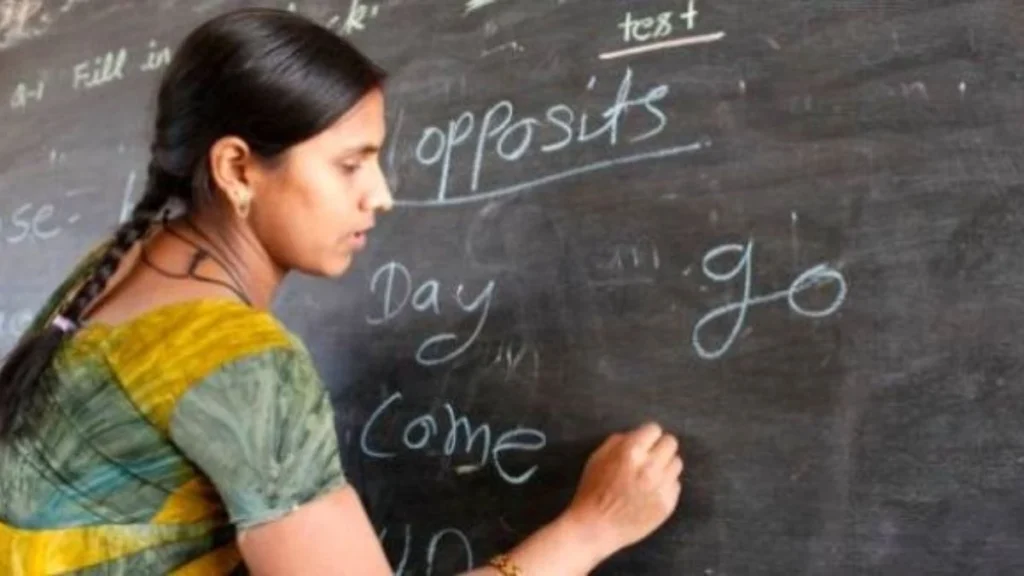 test
Q-1 Fill in
opposits
Day go
Come